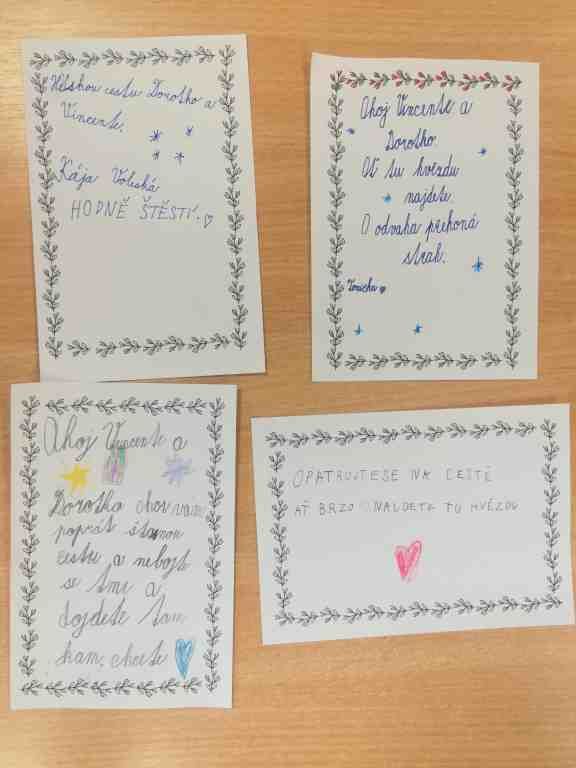 Hezkou cestu Dorotko a
Vincente.
Kája Volská
HODNĚ ŠTĚSTÍ!
Ahoj Vincente a
Dorotko.
Ať tu hvězdu
najdete.
O odvaha překoná
strach.
Ahoj Vincente a
Dorotko chci vám
popřát šťasnou
cestu a nebojte
se tmi a
dojdete tam
kam, chcete
OPATRUJTESE NA CESTĚ
AŤ BRZO NAJDETE TU HVĚZDU